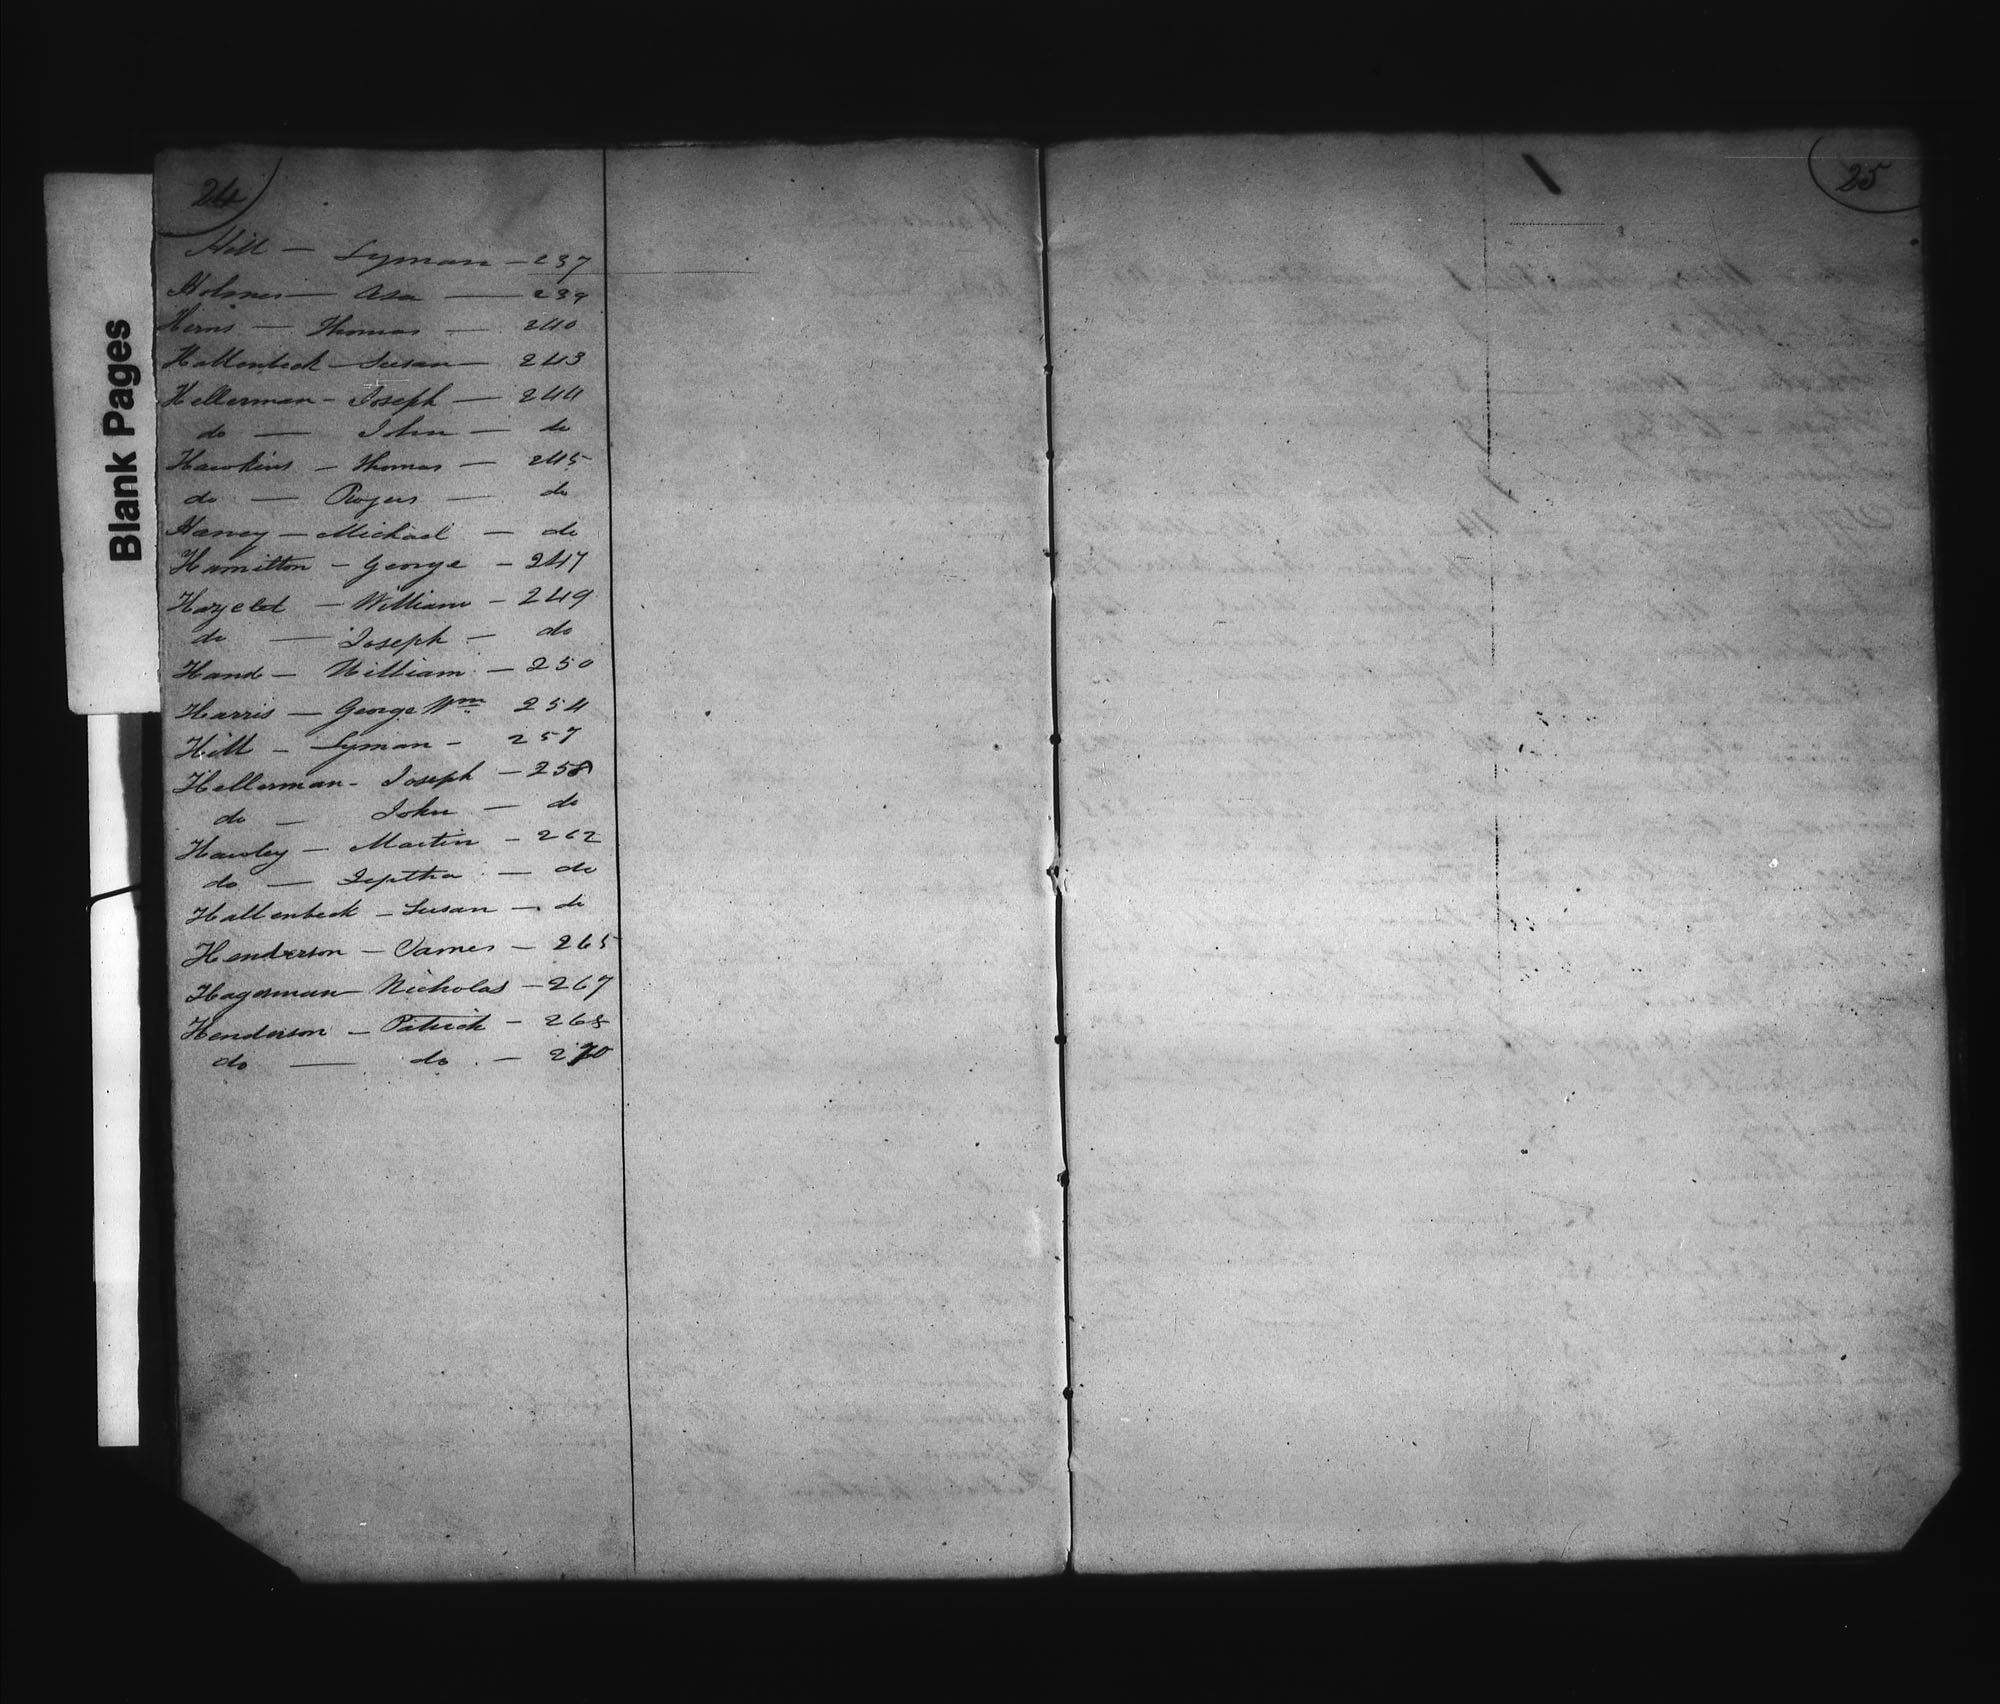 Blank Pages
24
Hill — Lyman — 237
Holmes — Asa — 239
Herns — Thomas — 240
Hallenbeck — Susan — 243
Hellerman — Joseph — 244
do — John — do
Hawkins — Thomas — 245
do — Rogers — do
Haney — Michael — do
Hamilton — George — 247
Hazeld — William — 249
do — Joseph — do
Hand — William — 250
Harris — George Wm 254
Hill — Lyman — 257
Hellerman — Joseph — 258
do — John — do
Hawley — Martin — 262
do — Jeptha — do
Hallenbeck — Susan — do
Henderson — James — 265
Hagerman — Nicholas — 267
Henderson — Patrick — 268
do — do — 270
25